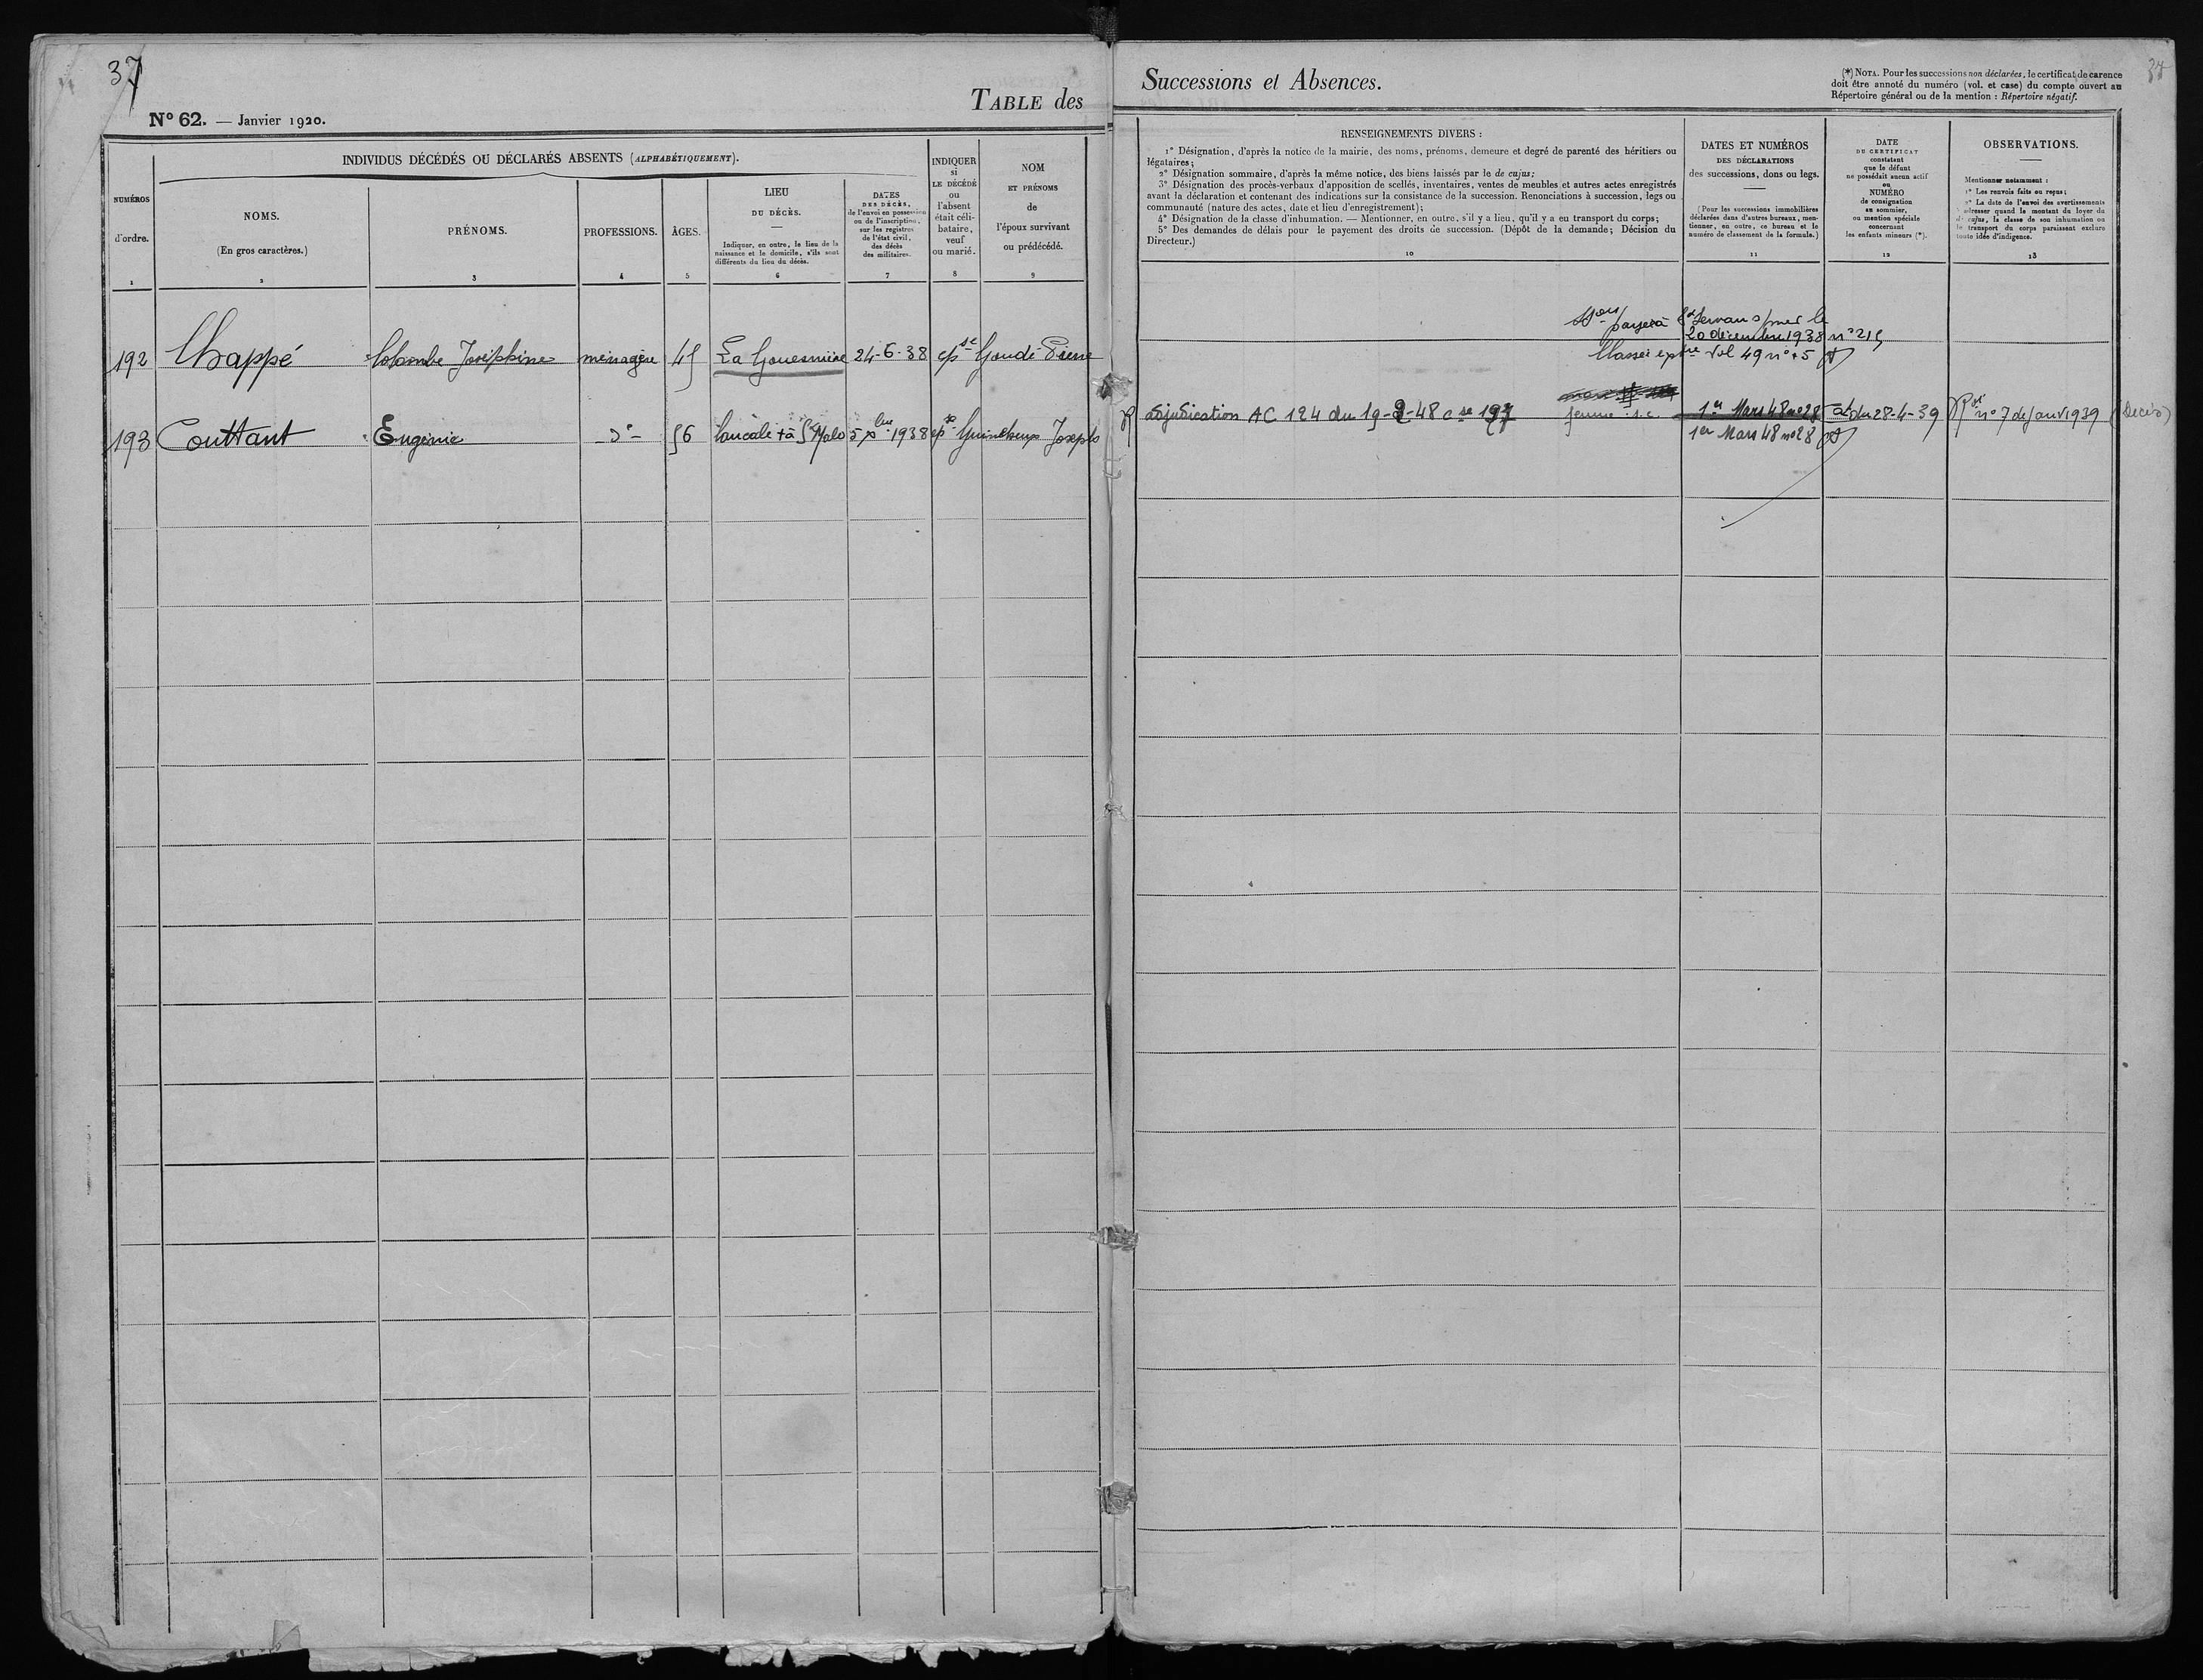 37
N° 62. — Janvier 1920.
TABLE des
INDIVIDUS DÉCÉDÉS OU DÉCLARÉS ABSENTS (ALPHABÉTIQUEMENT).
NUMÉROS
d'ordre.
1
NOMS.
(En gros caractères.)
2
PRÉNOMS.
3
PROFESSIONS.
4
ÂGES.
5
LIEU
DU DÉCÈS.
Indiquer, en outre, le lieu de la
naissance et le domicile, s'ils sont
différents du lieu du décès.
6
DATES
DES DÉCÈS,
de l'envoi en possession
ou de l'inscription,
sur les registres
de l'état civil,
des décès
des militaires.
7
INDIQUER
si
LE DÉCÉDÉ
ou
l'absent
était céli-
bataire,
veuf
ou marié.
8
NOM
ET PRÉNOMS
de
l'époux survivant
ou prédécédé.
9
192 Chappé Colombe Joséphine ménagère 45 La Gouesnière 24-6-38 épse Gaudé Pierre
193 Couttant Eugénie -d°- 56 Cancale + à St Malo 5 xbre 1938 épse Guincheux Joseph
Successions et Absences.
(*) NOTA. Pour les successions non déclarées, le certificat de carence
doit être annoté du numéro (vol. et case) du compte ouvert au
Répertoire général ou de la mention : Répertoire négatif.
37
RENSEIGNEMENTS DIVERS :
1° Désignation, d'après la notice de la mairie, des noms, prénoms, demeure et degré de parenté des héritiers ou
légataires;
2° Désignation sommaire, d'après la même notice, des biens laissés par le de cujus;
3° Désignation des procès-verbaux d'apposition de scellés, inventaires, ventes de meubles et autres actes enregistrés
avant la déclaration et contenant des indications sur la consistance de la succession. Renonciations à succession, legs ou
communauté (nature des actes, date et lieu d'enregistrement);
4° Désignation de la classe d'inhumation. — Mentionner, en outre, s'il y a lieu, qu'il y a eu transport du corps;
5° Des demandes de délais pour le payement des droits de succession. (Dépôt de la demande; Décision du
Directeur.)
10
DATES ET NUMÉROS
DES DÉCLARATIONS
des successions, dons ou legs.
(Pour les successions immobilières
déclarées dans d'autres bureaux, men-
tionner, en outre, ce bureau et le
numéro de classement de la formule.)
11
DATE
DU CERTIFICAT
constatant
que le défunt
ne possédait aucun actif
ou
NUMÉRO
de consignation
au sommier,
ou mention spéciale
concernant
les enfants mineurs (*).
12
OBSERVATIONS.
Mentionner notamment :
1° Les renvois faits ou reçus;
2° La date de l'envoi des avertissements
à adresser quand le montant du loyer du
de cujus, la classe de son inhumation ou
le transport du corps paraissent exclure
toute idée d'indigence.
13
payée à St Servan s/mer le
20 décembre 1938 n° 215
Classée Vol 49 n°
adjudication AC 124 du 19-2-48 cse 197 femme s.c. 1er Mars 48 no 28 du 28-4-39 n° 7 de Janv 1939 (Décès)
1er Mars 48 no 28